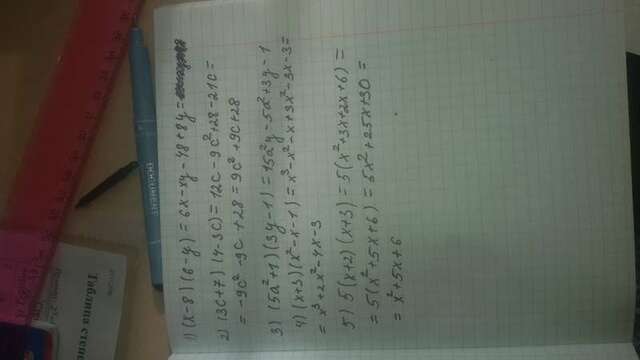 1) (x-8)(6-y)=6x-xy-48+8y=
2) (3c+7)(4-3c)=12c-9c²+28-21c=
=-9c²-9c+28=9c²+9c+28
3) (5a²+1)(3y-1)=15a²y-5a²+3y-1
4) (x+3)(x²-x-1)=x³-x²-x+3x²-3x-3=
=x³+2x²-4x-3
5) 5(x+2)(x+3)=5(x²+3x+2x+6)=
=5(x²+5x+6)=5x²+25x+30=
=x²+5x+6
DOCUMENT
Таблица степе